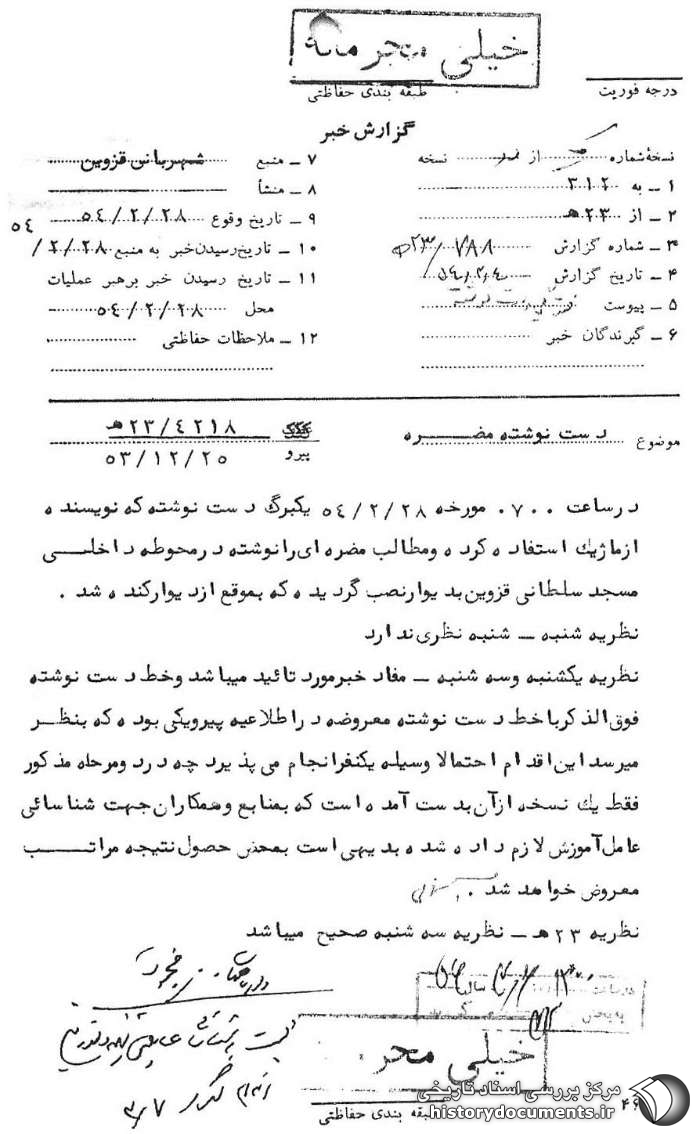 خیلی محرمانه
طبقه بندی حفاظتی
درجه فوریت
گزارش خبر
نسخهٔ شماره از نسخه
۱ ــ به ۳۱۲
۲ ــ از ۲۳هـ
۳ ــ شماره گزارش ۲۳/۷۸۸هـ
۴ ــ تاریخ گزارش
۵ ــ پیوست
۶ ــ گیرندگان خبر
۷ ــ منبع شهربانی قزوین
۸ ــ منشأ
۹ ــ تاریخ وقوع ۵۴/۲/۲۸
۱۰ ــ تاریخ رسیدن خبر به منبع ۲/۲۸/ ۵۴
۱۱ ــ تاریخ رسیدن خبر برهبر عملیات
محل ۵۴/۲/۲۸
۱۲ ــ ملاحظات حفاظتی
موضوع دست نوشته مضـــره
۲۳/۴۲۱۸هـ
پیرو ۵۳/۱۲/۲۵
درساعت ۰۷۰۰ مورخه ۵۴/۲/۲۸ یکبرگ دست نوشته که نویسنده
ازماژیك استفاده کرده ومطالب مضره ای رانوشته درمحوطه داخلــی
مسجد سلطانی قزوین بدیوارنصب گردیده که بموقع ازدیوارکنده شد .
نظریه شنبه ــ شنبه نظری ندارد
نظریه یکشنبه وسه شنبه ــ مفاد خبرمورد تائید میباشد وخط دست نوشته
فوق الذکرباخط دست نوشته معروضه دراطلاعیه پیرویکی بوده که بنظـر
میرسد این اقدام احتمالا وسیله یکنفرانجام می پذیرد چه درد ومرحله مذکور
فقط یك نسخه ازآن بدست آمده است که بمنابع وهمکاران جهت شناسائی
عامل آموزش لازم داده شده بدیهی است بمحض حصول نتیجه مراتــب
معروض خواهد شد .
نظریه ۲۳هـ ــ نظریه سه شنبه صحیح میباشد
خیلی محر
طبقه بندی حفاظتی
۴۶
مرکز بررسی اسناد تاریخی
www.historydocuments.ir